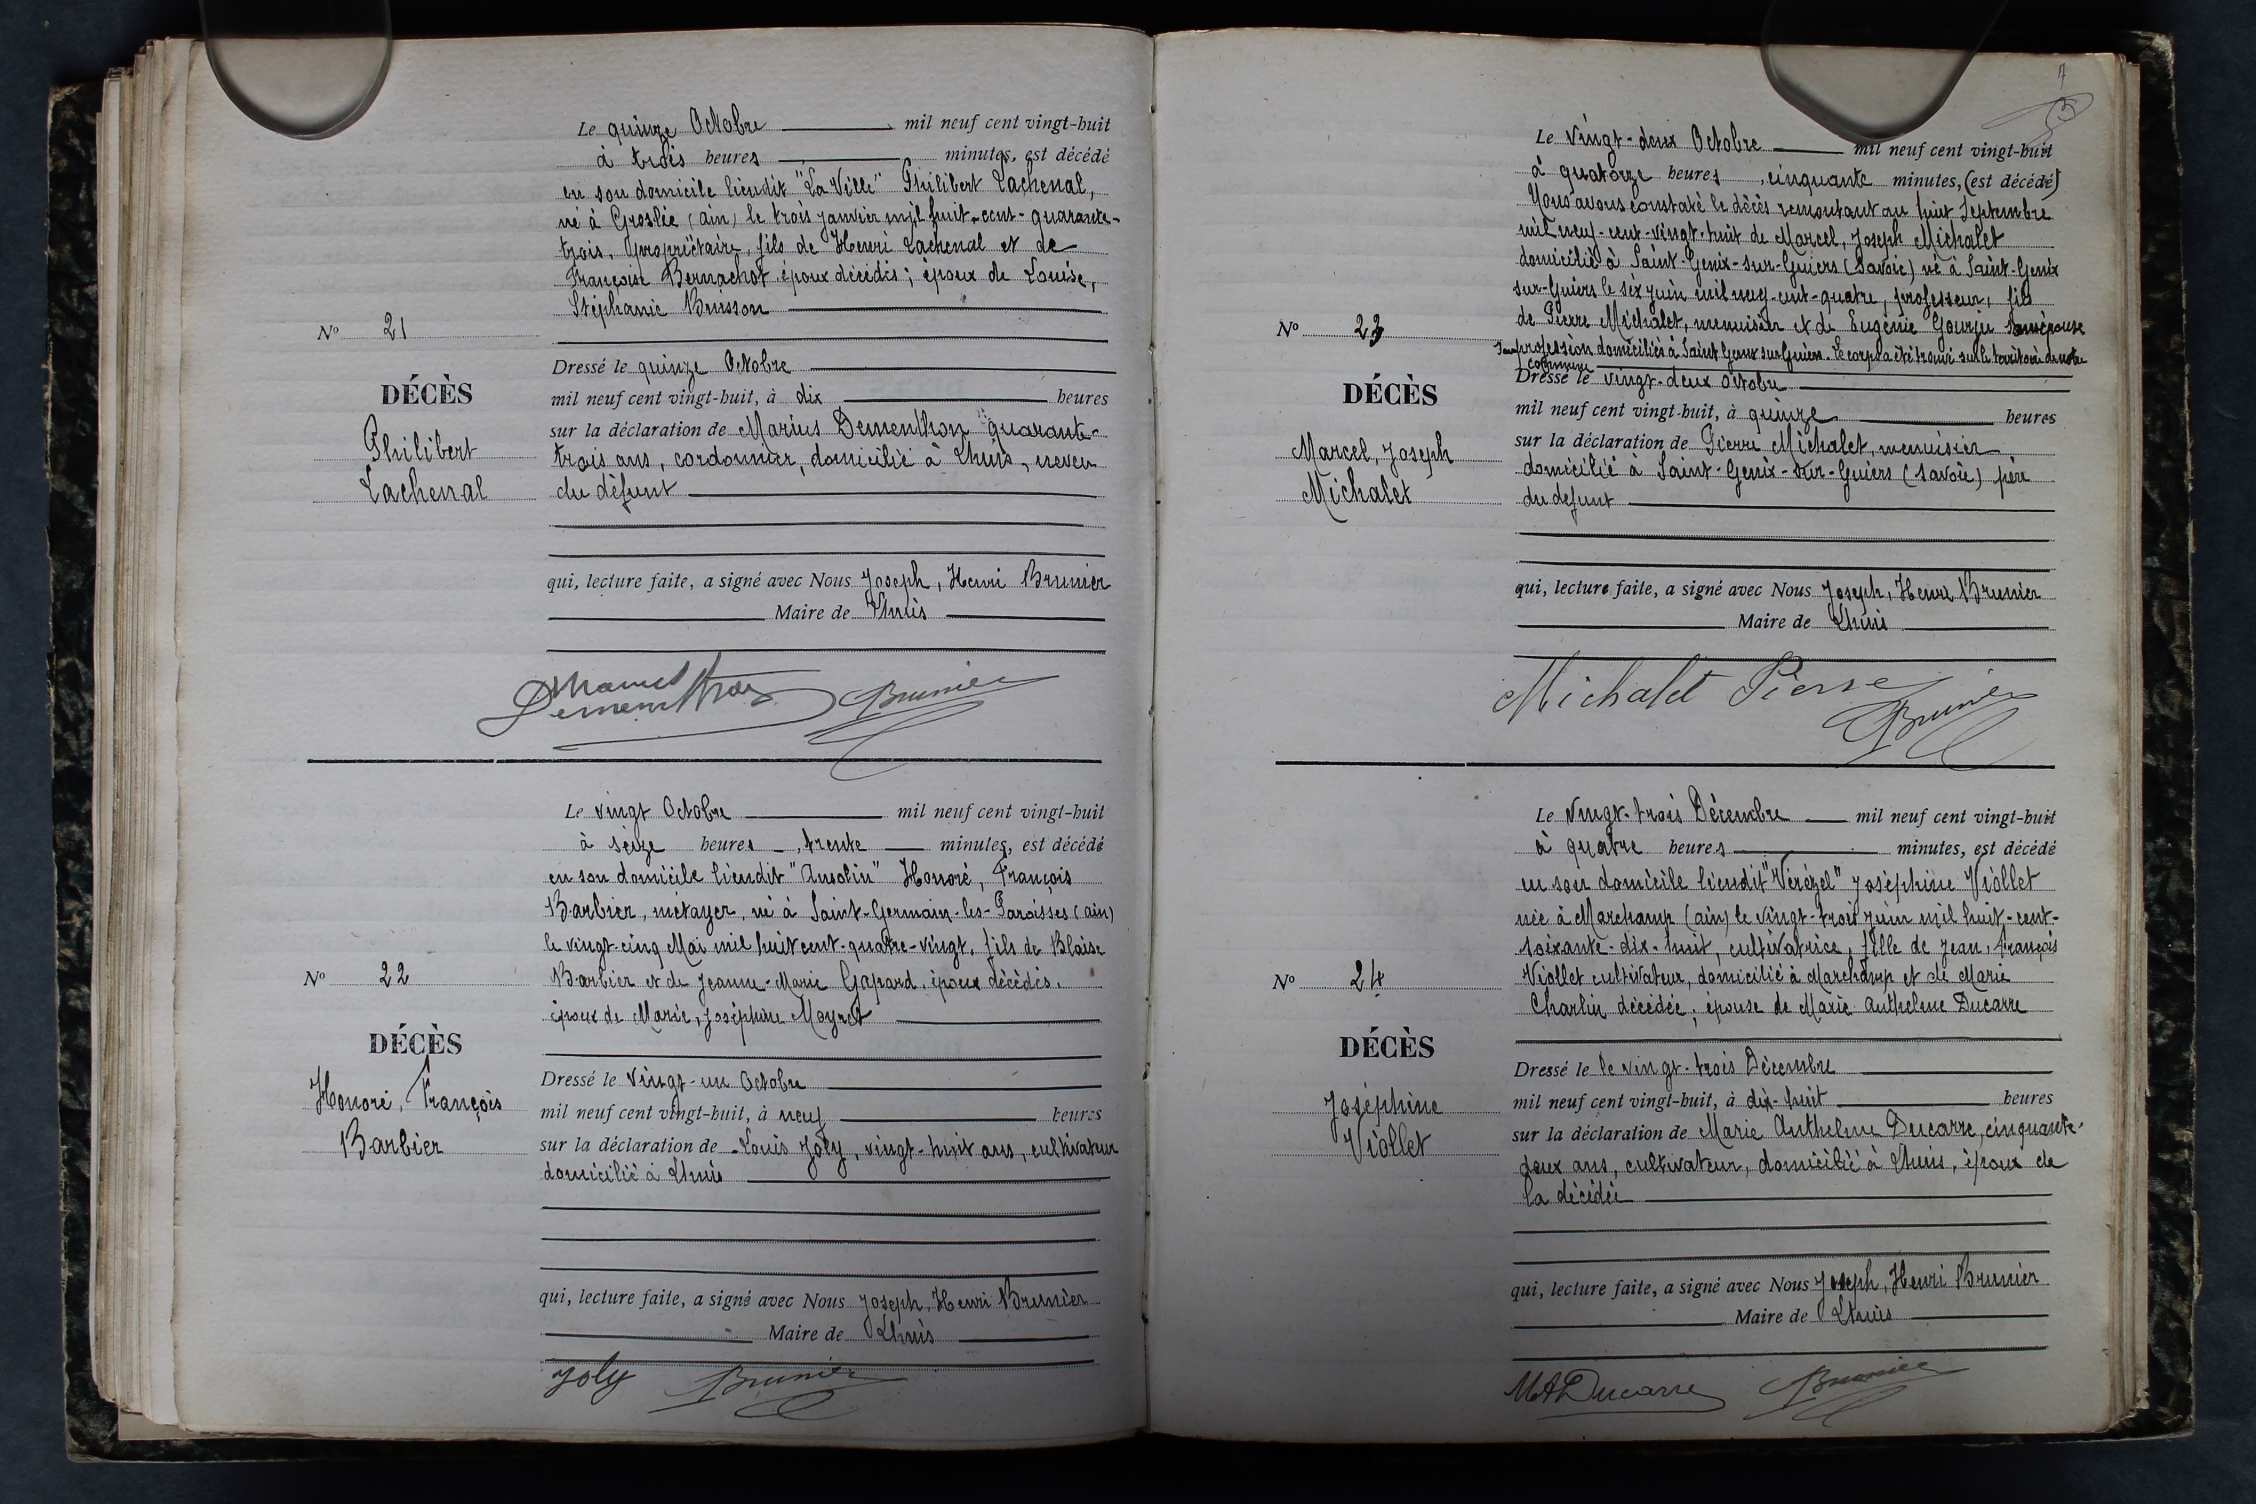 Le quinze Octobre mil neuf cent vingt-huit
à trois heures minutes, est décédé
en son domicile lieudit "La Ville" Philibert Lachenal,
né à Groslée (ain) le trois janvier mil huit-cent-quarante-
trois, propriétaire, fils de Henri Lachenal et de
Françoise Bernachot époux décédés; époux de Louise,
Stéphanie Buisson
N° 21
DÉCÈS
Philibert
Lachenal
Dressé le quinze Octobre
mil neuf cent vingt-huit, à dix heures
sur la déclaration de Marius Dementhon quarante-
trois ans, cordonnier, domicilié à Lhuis, neveu
du défunt
qui, lecture faite, a signé avec Nous Joseph, Henri Brunier
Maire de Lhuis
Dementhon Brunier
Le vingt Octobre mil neuf cent vingt-huit
à seize heures trente minutes, est décédé
en son domicile lieudit "Ansolin" Honoré, François
Barbier, métayer, né à Saint-Germain-les-Paroisses (ain)
le vingt-cinq Mai mil huit cent-quatre-vingt, fils de Blaise
Barbier et de Jeanne-Marie Gapard, époux décédés.
époux de Marie, Joséphine Mayret
N° 22
DÉCÈS
Honoré, François
Barbier
Dressé le vingt-un Octobre
mil neuf cent vingt-huit, à neuf heures
sur la déclaration de Louis Joly, vingt-huit ans, cultivateur
domicilié à Lhuis
qui, lecture faite, a signé avec Nous Joseph, Henri Brunier
Maire de Lhuis
Joly Brunier
7
Le vingt-deux Octobre mil neuf cent vingt-huit
à quatorze heures, cinquante minutes, (est décédé)
Nous avons constaté le décès remontant au huit Septembre
mil neuf-cent-vingt-huit de Marcel, Joseph Michalet
domicilié à Saint-Genix-sur-Guiers (Savoie) né à Saint-Genix
sur-Guiers le six juin mil neuf-cent-quatre, professeur, fils
de Pierre Michalet, menuisier et de Eugénie Gourju son épouse
sans profession domiciliés à Saint Genix sur Guiers. Le corps a été trouvé sur le territoire de notre
commune
N° 23
DÉCÈS
Marcel, Joseph
Michalet
Dressé le vingt-deux Octobre
mil neuf cent vingt-huit, à quinze heures
sur la déclaration de Pierre Michalet, menuisier
domicilié à Saint-Genix-sur-Guiers (Savoie) père
du défunt
qui, lecture faite, a signé avec Nous Joseph, Henri Brunier
Maire de Lhuis
Michalet Pierre Brunier
Le Vingt-trois Décembre mil neuf cent vingt-huit
à quatre heures minutes, est décédé
en son domicile lieudit "Vérézel" Joséphine Viollet
née à Marchamp (ain) le vingt-trois juin mil huit-cent-
soixante-dix-huit, cultivatrice, fille de Jean, François
Viollet cultivateur, domicilié à Marchamp et de Marie
Charlin décédée; épouse de Marie Anthelme Ducarre
N° 24
DÉCÈS
Joséphine
Viollet
Dressé le le vingt-trois Décembre
mil neuf cent vingt-huit, à dix-huit heures
sur la déclaration de Marie Anthelme Ducarre, cinquante-
deux ans, cultivateur, domicilié à Lhuis, époux de
la décédée
qui, lecture faite, a signé avec Nous Joseph, Henri Brunier
Maire de Lhuis
MADucarre Brunier